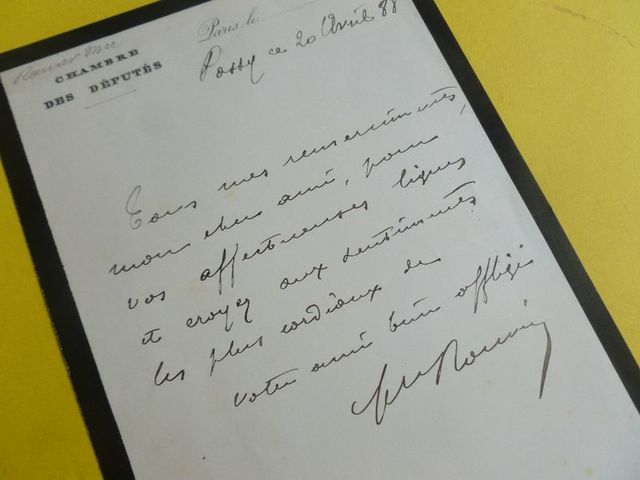 CHAMBRE
DES DÉPUTÉS
Paris, le
Passy ce 20 Avril 88
Tous mes remerciements,
mon cher ami, pour
vos affectueuses lignes
et croyez aux sentiments
les plus cordiaux de
votre ami bien affligé